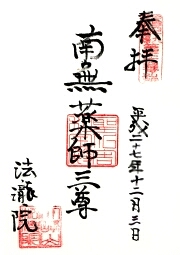 奉拝
平成二十七年十二月三日
南無薬師三尊
法瀧院